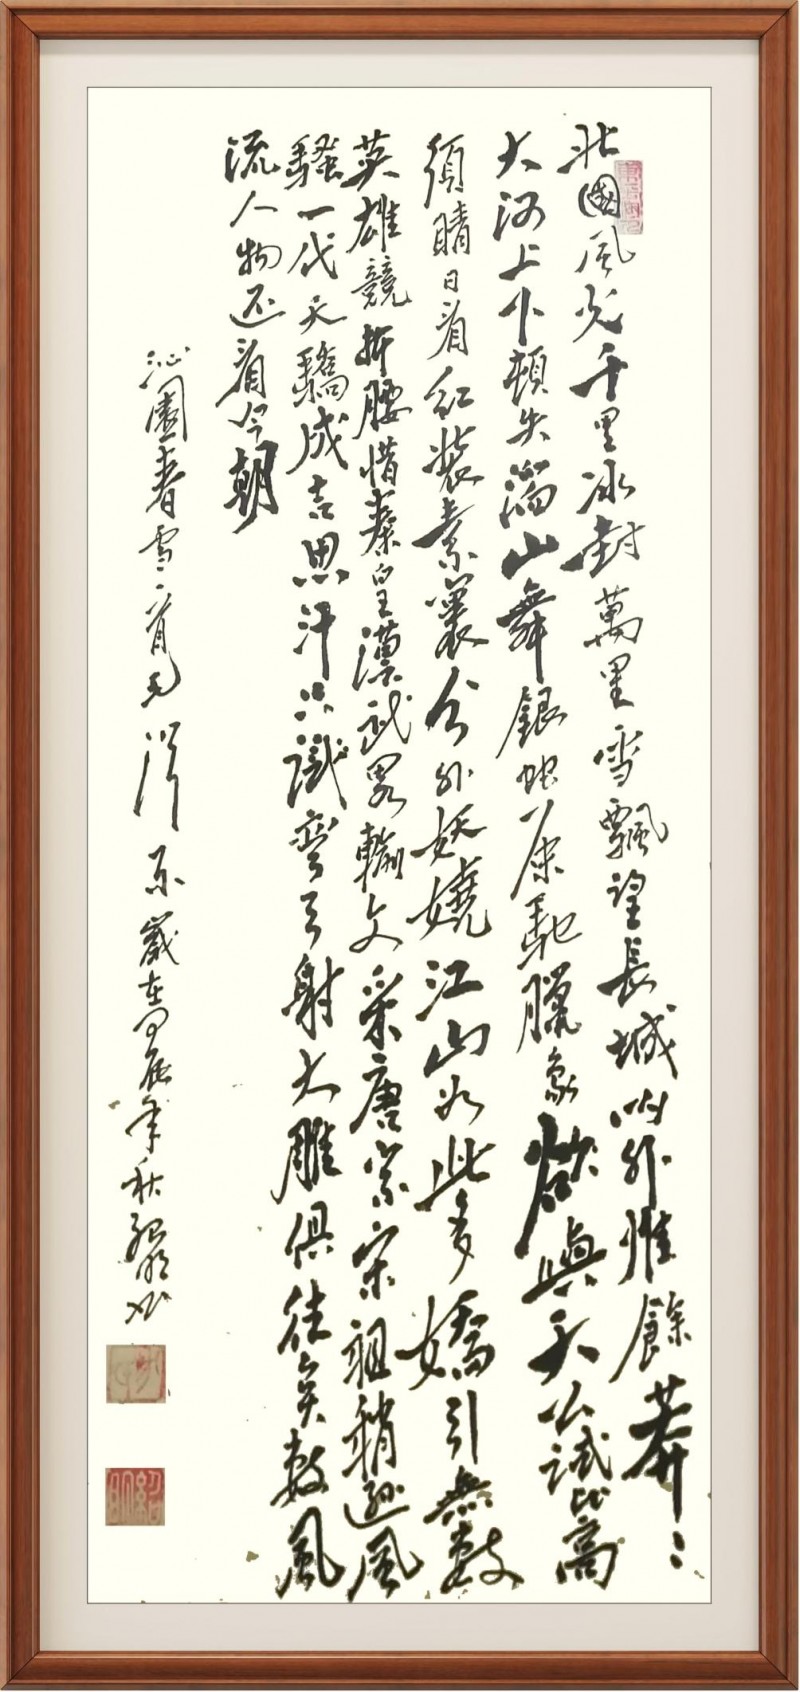 北國風光千里冰封萬里雪飄望長城內外惟餘莽〻
大河上下頓失滔山舞銀蛇原馳臘象欲與天公試比高
須晴日看紅裝素裹分外妖嬈江山如此多嬌引無數
英雄競折腰惜秦皇漢武略輸文采唐宗宋祖稍遜風
騷一代天驕成吉思汗只識彎弓射大雕俱往矣數風
流人物还看今朝
沁園春雪一首毛泽东歲在甲辰年秋紹明书
紹明